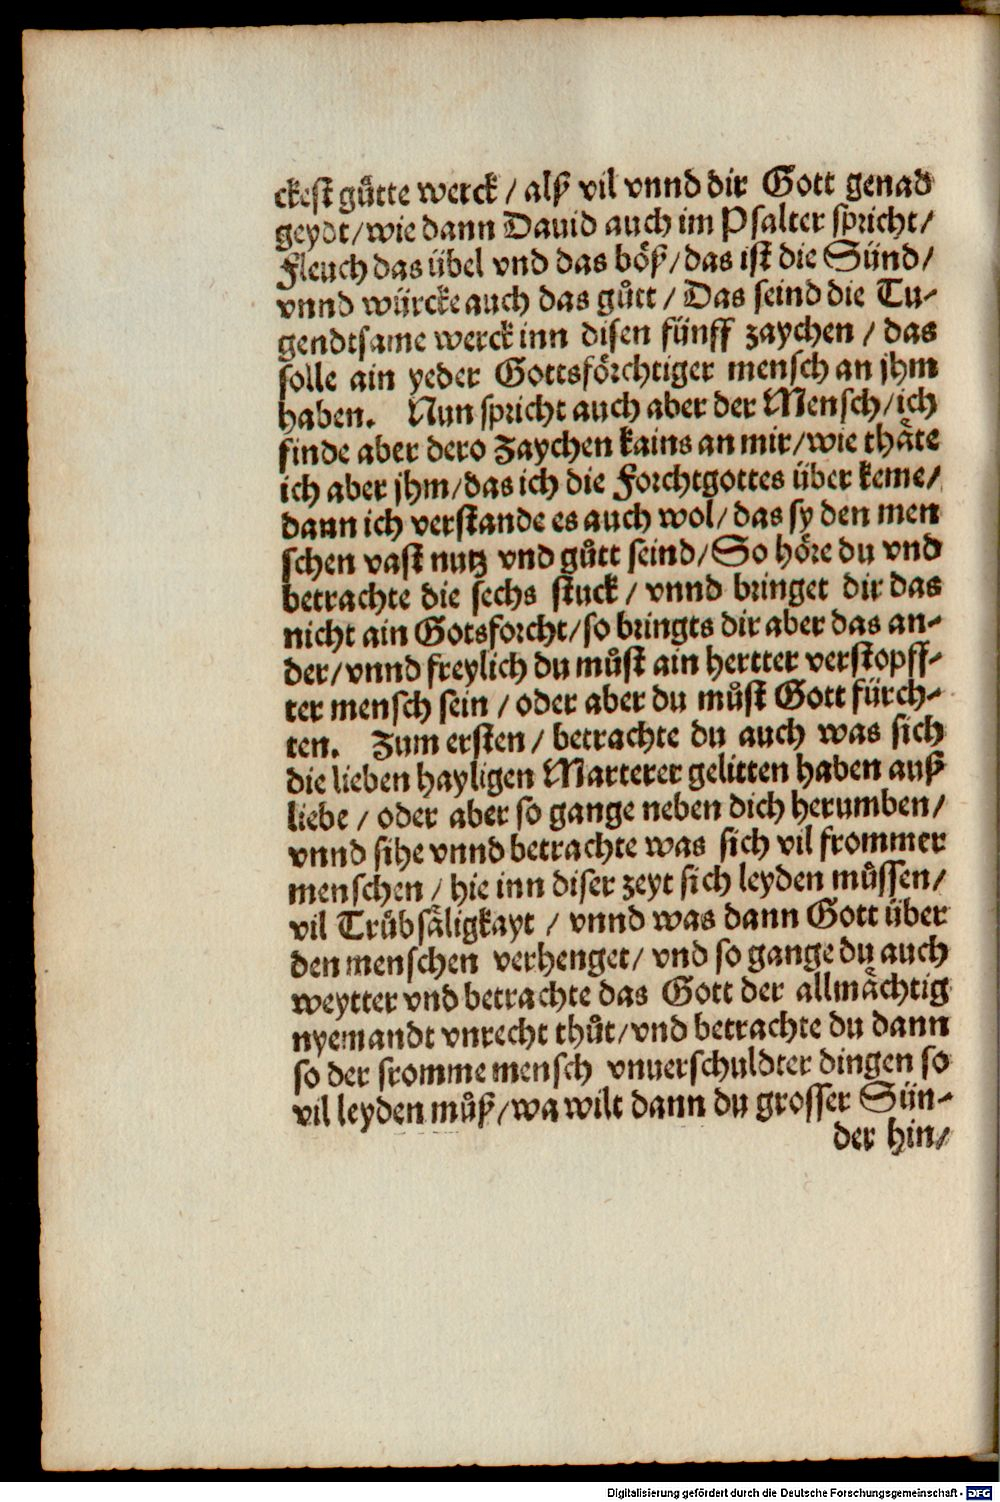 ckest guͦtte werck / alß vil vnnd dir Gott genad
geydt/wie dann Dauid auch im Psalter spricht/
Fleuch das übel vnd das böß/das ist die Sünd/
vnnd würcke auch das guͦtt / Das seind die Tu-
gendtsame werck inn disen fünff zaychen / das
solle ain yeder Gottsförchtiger mensch an jhm
haben. Nun spricht auch aber der Mensch/ich
finde aber dero Zaychen kains an mir/wie thäte
ich aber jhm/das ich die Forchtgottes über keme/
dann ich verstande es auch wol/das sy den men
schen vast nutz vnd guͦtt seind/So höre du vnd
betrachte die sechs stuck / vnnd bringet dir das
nicht ain Gotsforcht/so bringts dir aber das an-
der/vnnd freylich du muͦst ain hertter verstopff-
ter mensch sein / oder aber du muͦst Gott fürch-
ten. Zum ersten / betrachte du auch was sich
die lieben hayligen Marterer gelitten haben auß
liebe / oder aber so gange neben dich herumben/
vnnd sihe vnnd betrachte was sich vil frommer
menschen / hie inn diser zeyt sich leyden muͤssen/
vil Truͤbsäligkayt / vnnd was dann Gott über
den menschen verhenget/ vnd so gange du auch
weytter vnd betrachte das Gott der allmächtig
nyemandt vnrecht thuͦt/vnd betrachte du dann
so der fromme mensch vnuerschuldter dingen so
vil leyden muͦß/wa wilt dann du grosser Sün-
der hin/
Digitalisierung gefördert durch die Deutsche Forschungsgemeinschaft - DFG